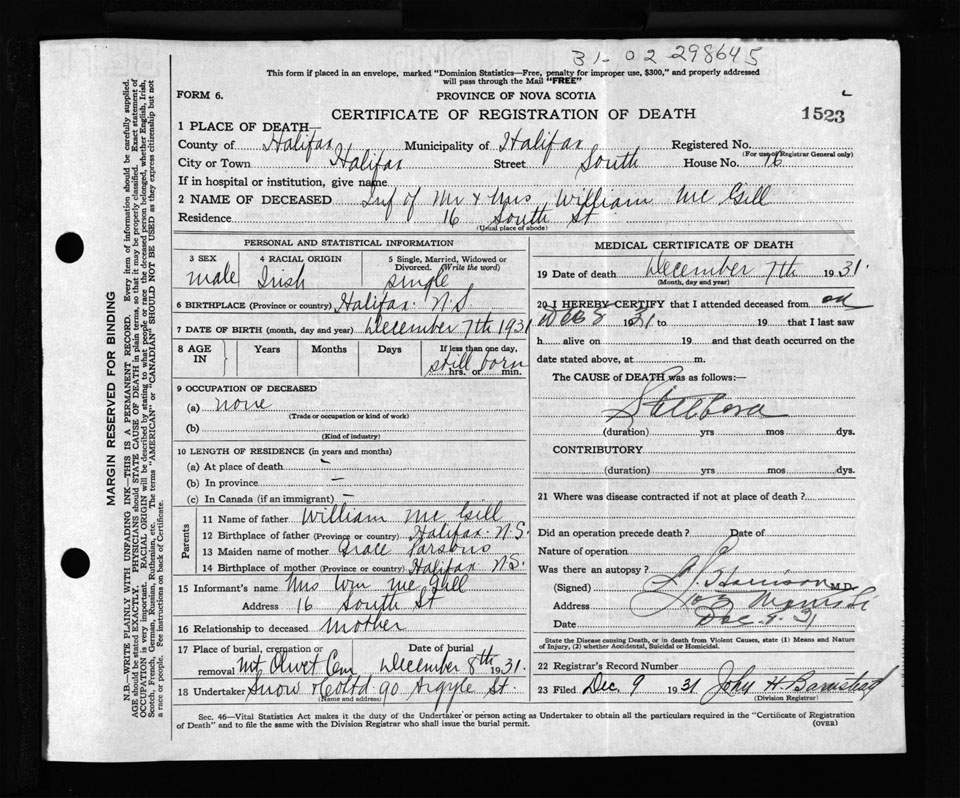 31-02 298645
This form if placed in an envelope, marked "Dominion Statistics—Free, penalty for improper use, $300," and properly addressed
will pass through the Mail "FREE"
FORM 6.
PROVINCE OF NOVA SCOTIA
CERTIFICATE OF REGISTRATION OF DEATH
1523
1 PLACE OF DEATH—
County of Halifax Municipality of Halifax Registered No.
(For use of Registrar General only)
City or Town Halifax Street South House No. 16
If in hospital or institution, give name
2 NAME OF DECEASED Inf of Mr & Mrs William Mc Gill
Residence 16 South St
(Usual place of abode)
PERSONAL AND STATISTICAL INFORMATION
3 SEX
male
4 RACIAL ORIGIN
Irish
5 Single, Married, Widowed or
Divorced. (Write the word)
single
6 BIRTHPLACE (Province or country) Halifax N.S
7 DATE OF BIRTH (month, day and year) December 7th 1931
8 AGE
IN
Years
Months
Days
If less than one day,
still born
hrs. or min.
9 OCCUPATION OF DECEASED
(a) none
(Trade or occupation or kind of work)
(b)
(Kind of industry)
10 LENGTH OF RESIDENCE (in years and months)
(a) At place of death –
(b) In province –
(c) In Canada (if an immigrant) –
Parents
11 Name of father William Mc Gill
12 Birthplace of father (Province or country) Halifax N.S.
13 Maiden name of mother Grace Parsons
14 Birthplace of mother (Province or country) Halifax N.S.
15 Informant's name Mrs Wm Mc Gill
Address 16 South St
16 Relationship to deceased mother
17 Place of burial, cremation or
removal Mt Olivet Cem
Date of Burial
December 8th 1931.
18 Undertaker Snow & Co Ltd 90 Argyle St.
(Name and address)
MEDICAL CERTIFICATE OF DEATH
19 Date of death December 7th 1931.
(Month, day and year)
20 I HEREBY CERTIFY that I attended deceased from on
Dec 8 1931 to 19 that I last saw
h alive on 19 and that death occurred on the
date stated above, at m.
The CAUSE of DEATH was as follows:—
Stillborn
(duration) yrs mos dys.
CONTRIBUTORY
(duration) yrs mos dys.
21 Where was disease contracted if not at place of death?
Did an operation precede death? Date of
Nature of operation
Was there an autopsy?
(Signed) Harrison M.D.
Address
Date Dec. 8. 31
State the Disease causing Death, or in death from Violent Causes, state (1) Means and Nature
of Injury, (2) whether Accidental, Suicidal or Homicidal.
22 Registrar's Record Number
23 Filed Dec. 9 1931 John H Barnstead
(Division Registrar)
Sec. 46—Vital Statistics Act makes it the duty of the Undertaker or person acting as Undertaker to obtain all the particulars required in the "Certificate of Registration
of Death" and to file the same with the Division Registrar who shall issue the burial permit.
(OVER)
MARGIN RESERVED FOR BINDING
N.B.—WRITE PLAINLY WITH UNFADING INK—THIS IS A PERMANENT RECORD. Every item of information should be carefully supplied.
AGE should be stated EXACTLY. PHYSICIANS should STATE CAUSE OF DEATH in plain terms, so that it may be properly classified. Exact statement of
OCCUPATION is very important. RACIAL ORIGIN will be described by stating to what people or race the deceased person belonged, whether English, Irish,
Scotch, French, German, Russian, Ruthenian, etc. The terms "AMERICAN" or "CANADIAN" SHOULD NOT BE USED as they express citizenship but not
a race or people. Fee instructions on back of Certificate.